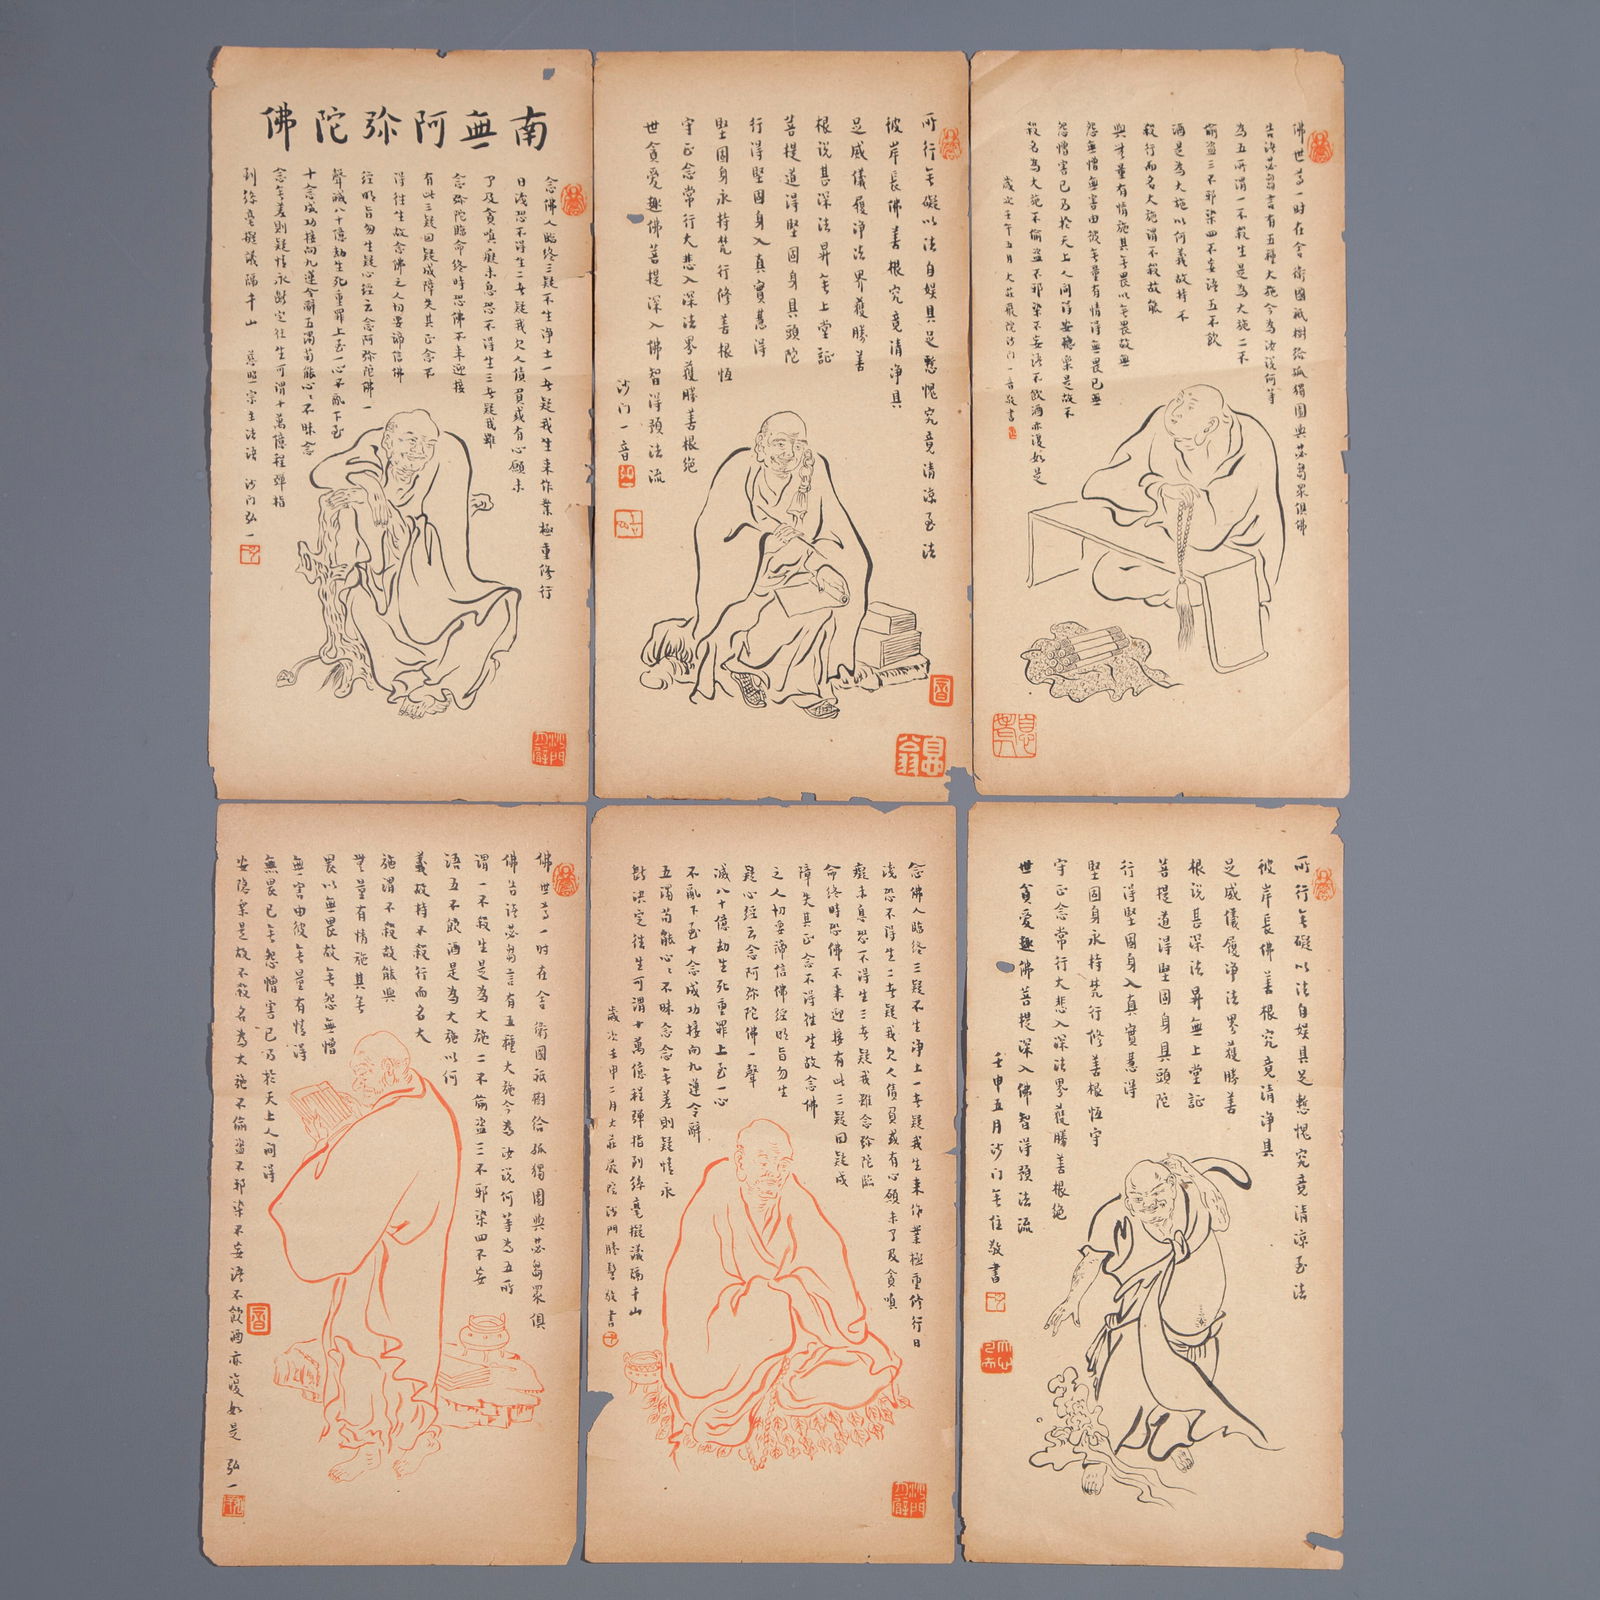 南無阿弥陀佛
念佛人臨終三疑不生淨土一者疑我生來作業極重修行
日淺恐不得生二者疑我欠人債負或有心願未
了及貪嗔癡未息恐不得生三者疑我雖
念弥陀臨命終時恐佛不來迎接
有此三疑因疑成障失其正念不
得往生故念佛之人切要諦信佛
經明旨勿生疑心經云念阿弥陀佛一
聲滅八十億劫生死重罪上至一心不亂下至
十念成功接向九蓮令辭五濁苟能心心不昧念
念無差則疑情永斷定往生可謂十萬億程彈指
到絲毫擬議隔千山 慈照宗主法語 沙門弘一
所行無礙以法自娛具足慙愧究竟清涼至法
彼岸長佛善根究竟清淨具
足威儀履淨法界獲勝善
根說甚深法昇無上堂証
菩提道得堅固身具頭陀
行得堅固身入真實慧得
堅固身永持梵行修善根恆
守正念常行大悲入深法界獲勝善根絕
世貪愛趣佛菩提深入佛智得預法流
沙门一音
佛世尊一時在舍衛國祇樹給孤獨園與苾芻眾俱佛
告諸苾芻言有五種大施今為汝說何等
為五所謂一不殺生是為大施二不
偷盜三不邪染四不妄語五不飲
酒是為大施以何義故持不
殺行而名大施謂不殺故能
與無量有情施其無畏以無畏故無
怨無憎無害由彼無量有情得無畏已無
怨憎害已乃於天上人間得安隱樂是故不
殺名為大施不偷盜不邪染不妄語不飲酒亦復如是
歲次壬午五月大莊嚴院沙门一音敬書
佛世尊一时在舍衛國祇樹給孤獨園與苾芻眾俱
佛告諸苾芻言有五種大施今為汝說何等為五所
謂一不殺生是為大施二不偷盜三不邪染四不妄
語五不飲酒是為大施以何
義故持不殺行而名大
施謂不殺故能與
無量有情施其無
畏以無畏故無怨無憎
無害由彼無量有情得
無畏已無怨憎害已乃於天上人间得
安隱樂是故不殺名為大施不偷盜不邪染不妄語不飲酒亦復如是 弘一
念佛人臨終三疑不生淨土一者疑我生來作業極重修行日
淺恐不得生二者疑我欠人債負或有心願未了及貪嗔
癡未息恐不得生三者疑我雖念弥陀臨
命終時恐佛不來迎接有此三疑因疑成
障失其正念不得往生故念佛
之人切要諦信佛經明旨勿生
疑心經云念阿弥陀佛一聲
滅八十億劫生死重罪上至一心
不亂下至十念成功接向九蓮令辭
五濁苟能心心不昧念念無差則疑情永
斷決定往生可謂十萬億程彈指到絲毫擬議隔千山
歲次壬申二月大莊嚴院沙門勝髻敬書
所行無礙以法自娛具足慙愧究竟清涼至法
彼岸長佛善根究竟清淨具
足威儀履淨法界獲勝善
根說甚深法昇無上堂証
菩提道得堅固身具頭陀
行得堅固身入真實慧得
堅固身永持梵行修善根恆守
守正念常行大悲入深法界獲勝善根絕
世貪愛趣佛菩提深入佛智得預法流
壬申五月沙门無住敬書